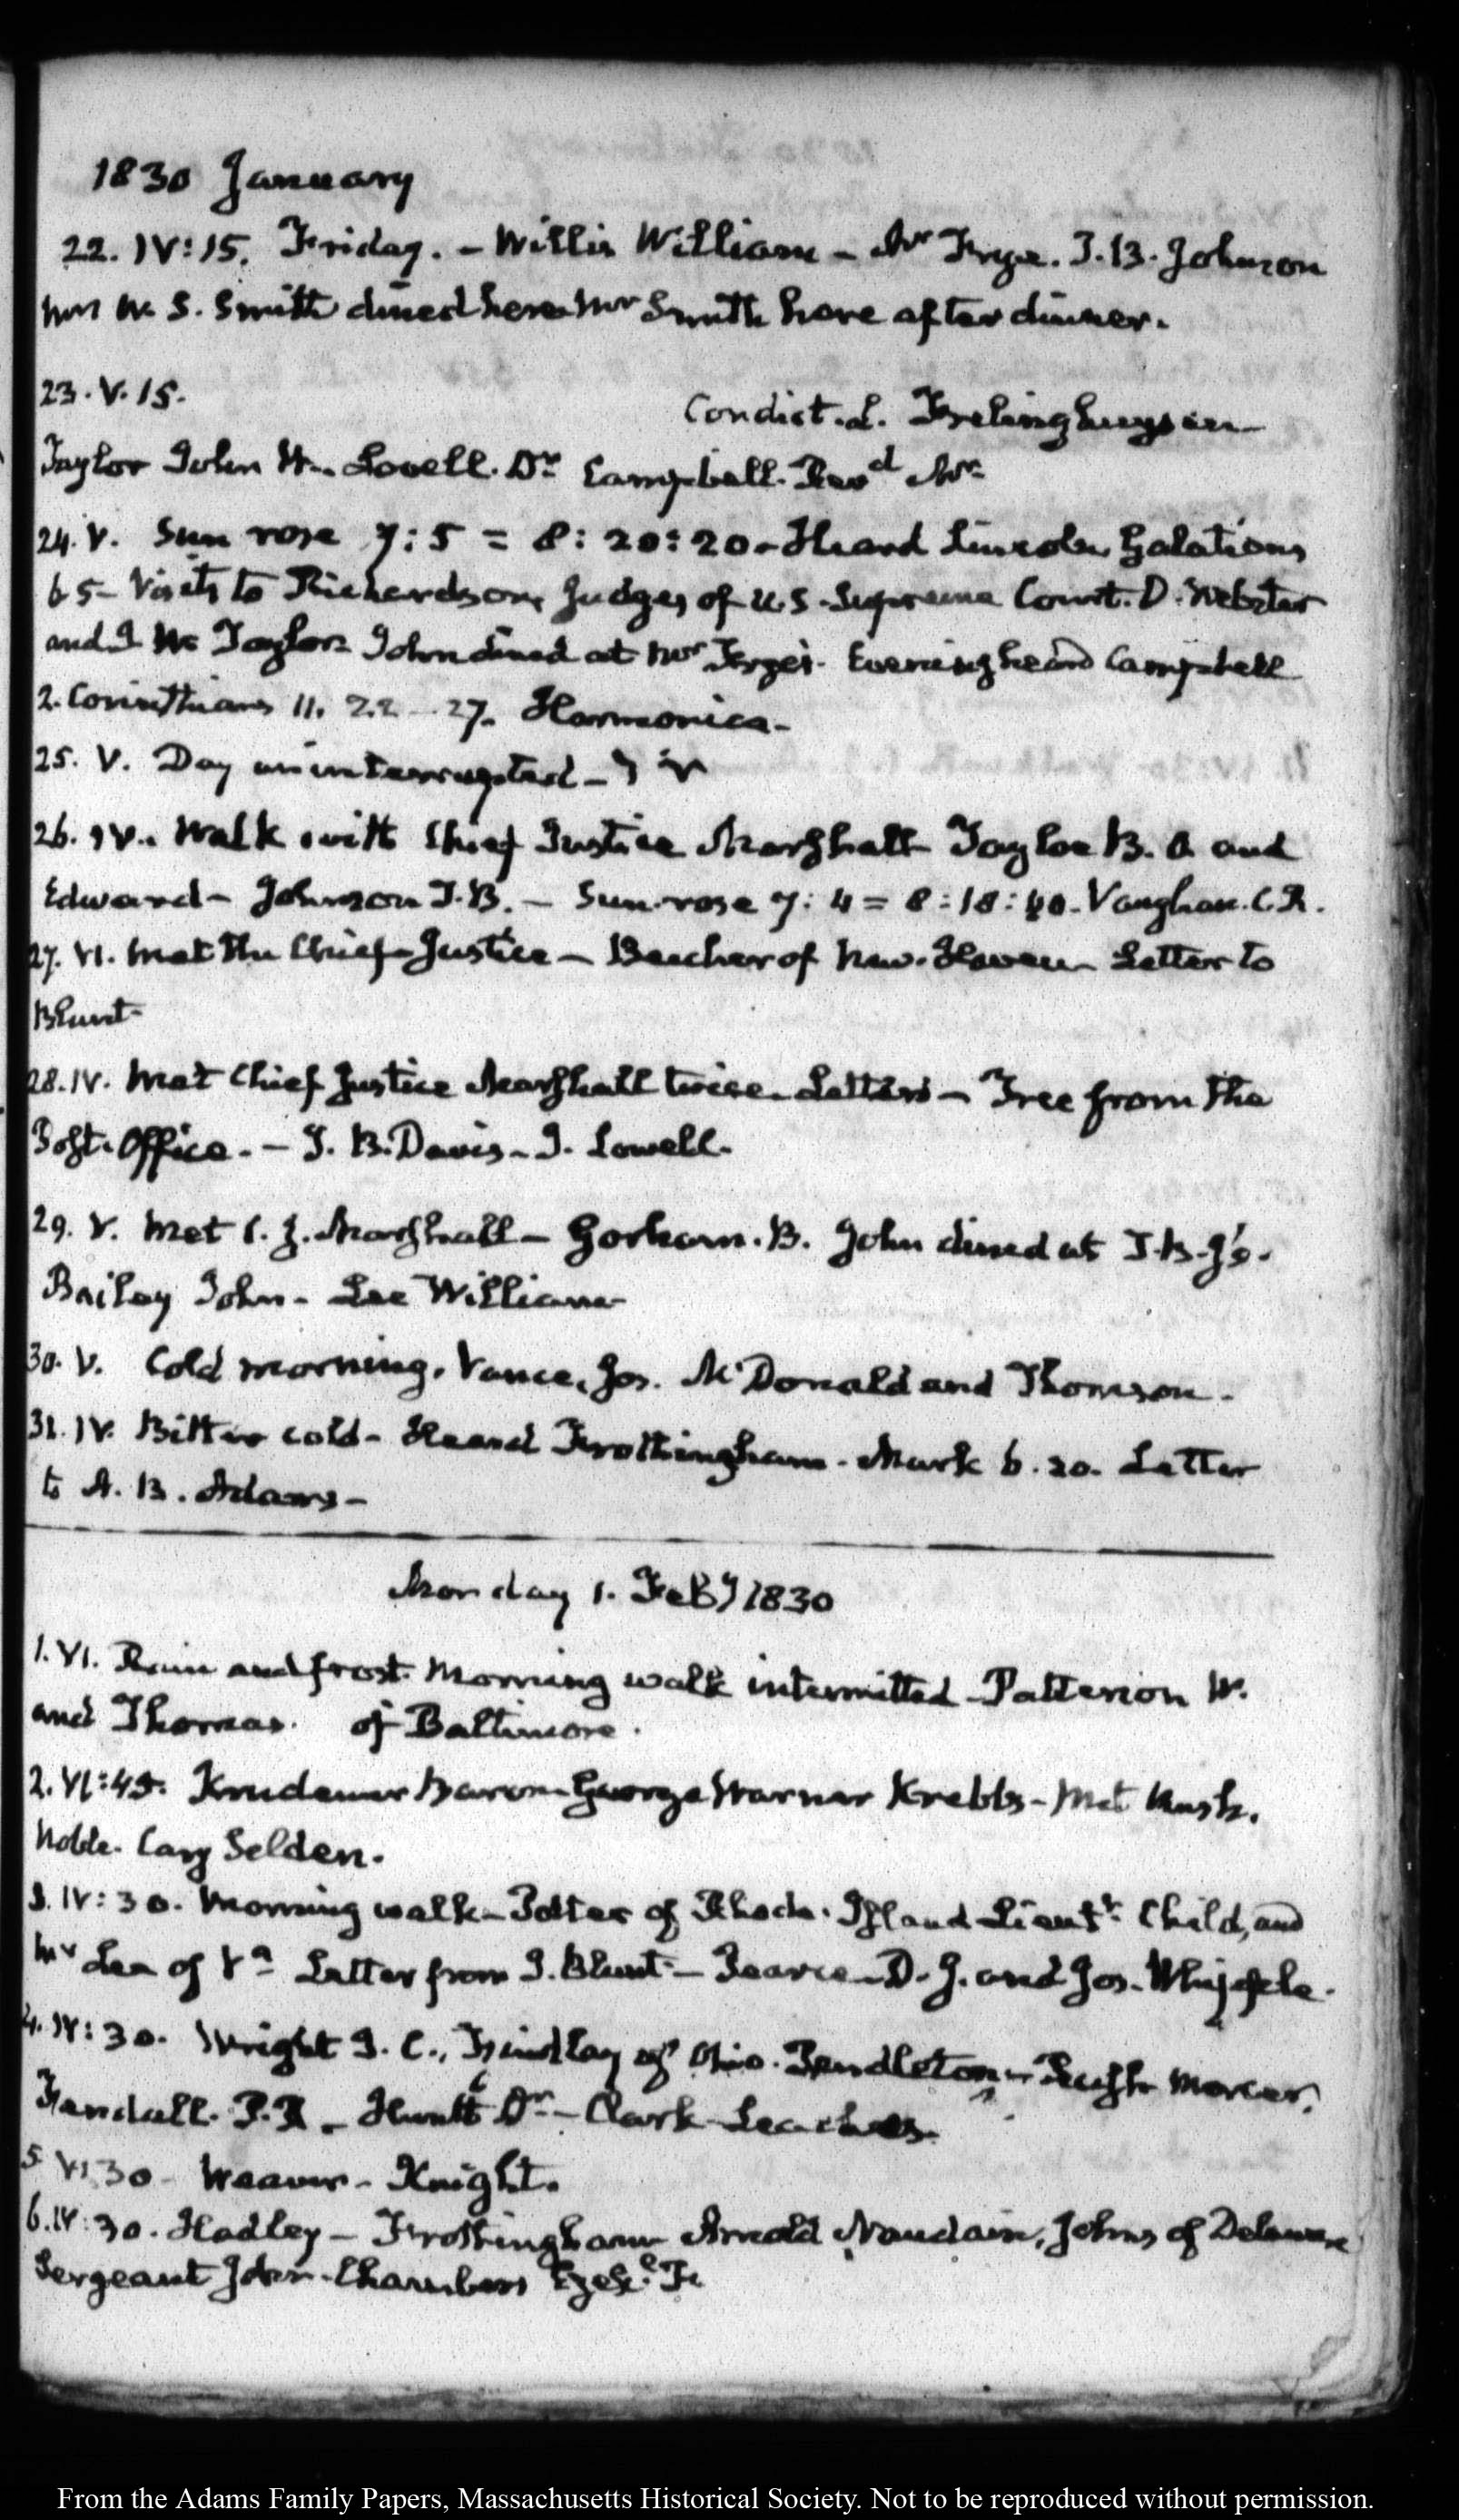 1830 January
22. IV:15. Friday. – Willis William – Mr Frye. T. B. Johnson
Mrs W. S. Smith dined here Mr Smith here after dinner.
23. V. 15. Condict. L. Frelinghuysen
Taylor John W. Lovell. Dr. Campbell. Revd Mr
24. V. Sun rose 7:5 = 8:20:20 – Heard Lincoln Galatians
6 5 – Visits to Richardson, Judges of U.S. Supreme Court. D. Webster
and J W Taylor John dined at Mrs Frye's. Evening heard Campbell
2. Corinthians 11. 22 – 27. Harmonica –
25. V. Day uninterrupted –
26. IV. Walk with Chief Justice Marshall Tayloe B. O and
Edward – Johnson T. B. – Sun rose 7:4 = 8:18:40. Vaughan. C. R.
27. VI. Met the Chief Justice – Beecher of New-Haven Letter to
Blunt
28. IV. Met Chief Justice Marshall twice. Letters – Free from the
Post-Office. – J. B. Davis – J. Lowell.
29. V. Met C. J. Marshall – Gorham. B. John dined at T. B. J's.
Bailey John – Lee William
30. V. Cold morning. Vance, Jos. McDonald and Thomson.
31. IV. Bitter cold – Heard Frothingham. Mark 6. 20. Letter
to A. B. Adams –
Monday 1. Feby 1830
1. VI. Rain and frost. Morning walk intermitted – Patterson W.
and Thomas. of Baltimore.
2. VI:45. Krudener Baron George Warner Krebbs – Met Rush.
Noble. Cary Selden.
3. IV:30. Morning walk – Potter of Rhode-Island Lieutt. Child, and
Mr Lea of Va Letter from J. Blunt – Pearce D. J. and Jos. Whipple.
4. IV:30. Wright J. C., Findlay of Ohio. Pendleton – Mercer,
Randall. Huntt Dr – Clark
5 VI 30 – Weaver – Knight.
6. IV:30. Hadley – Frothingham Arnold Naudain, Johns of Delaware
Sergeant John – Chambers Ezekl
From the Adams Family Papers, Massachusetts Historical Society. Not to be reproduced without permission.